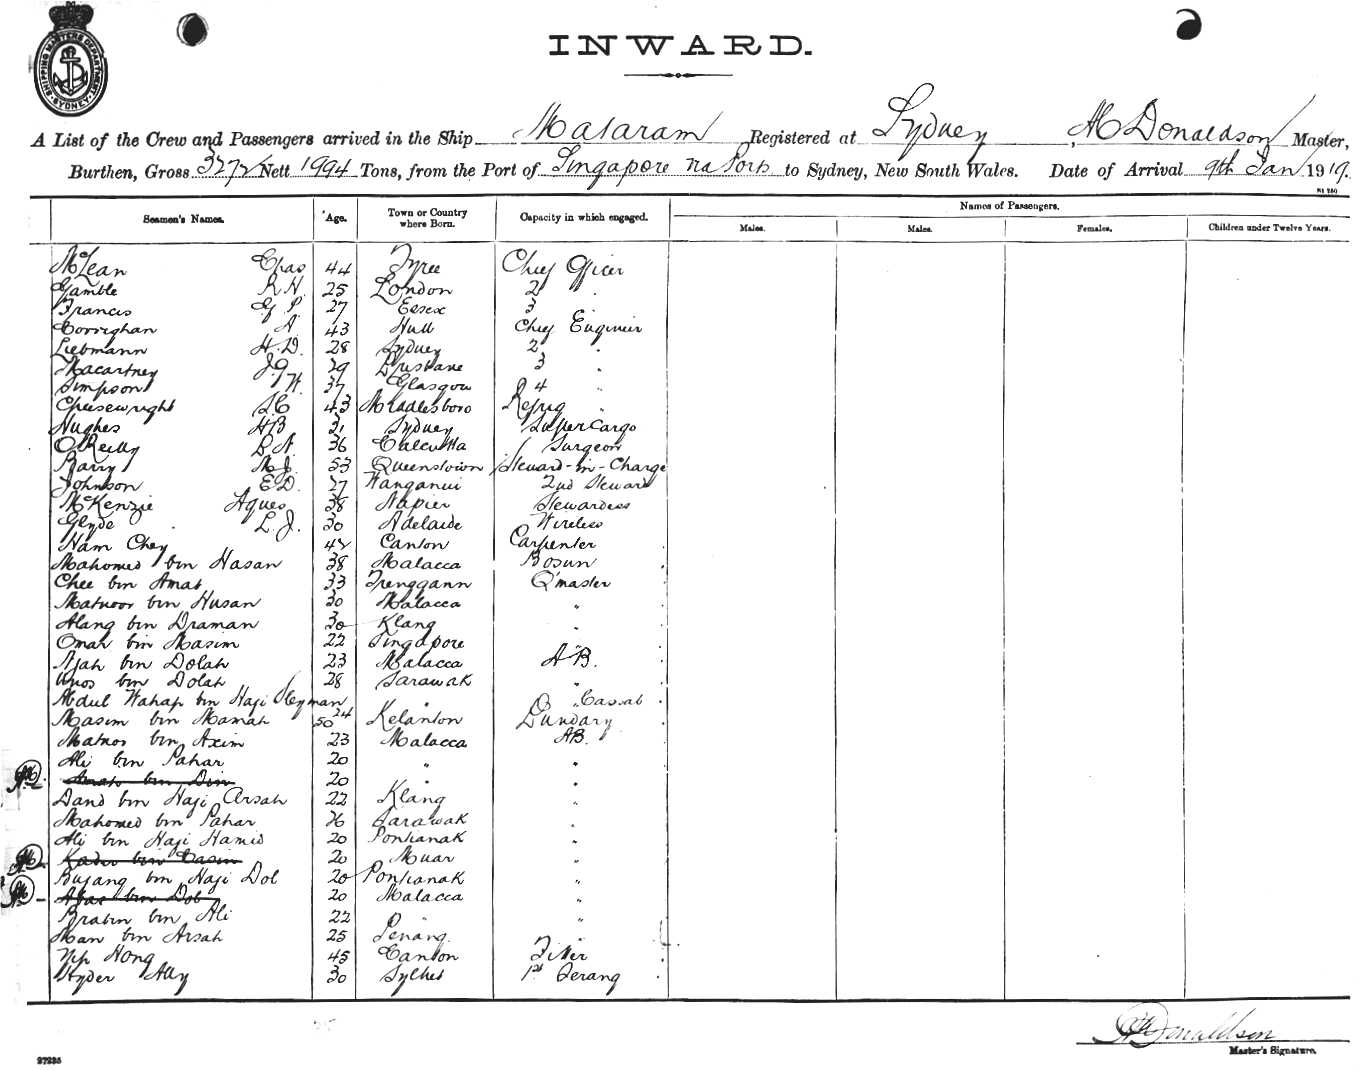 SHIPPING MASTERS DEPARTMENT SYDNEY
INWARD.
A List of the Crew and Passengers arrived in the Ship Mataram Registered at Sydney, McDonaldson Master,
Burthen, Gross 3272 Nett 1994 Tons, from the Port of Singapore via Ports to Sydney, New South Wales. Date of Arrival 9th Jan 1919.
Seamen's Names. Age. Town or Country where Born. Capacity in which engaged. Names of Passengers.
Males. Males. Females. Children under Twelve Years.
McLean Chas 44 Tyree Chief Officer
Gamble R H 25 London 2 "
Francis G P 27 Essex 3 "
Corrighan A 43 Hull Chief Engineer
Liebmann H.D. 28 Sydney 2 "
Macartney J.G. 29 Brisbane 3 "
Simpson W. 37 Glasgow 4 "
Cheesewright S.C 43 Middlesboro Refrig "
Hughes H B 21 Sydney SuperCargo
O'Reilly B A 36 Calcutta Surgeon
Barry M.J. 53 Queenstown Steward-in-Charge
Johnson E.D. 37 Wanganui 2nd Steward
McKenzie Agnes 38 Napier Stewardess
Glyde L.J. 30 Adelaide Wireless
Ham Chey 42 Canton Carpenter
Mahomed bin Hasan 38 Malacca Bosun
Chee bin Amat 33 Trenggann Q'master
Matnoor bin Husan 30 Malacca "
Alang bin Draman 30 Klang "
Omar bin Masim 22 Singapore "
Ajah bin Dolah 23 Malacca AB.
Unos bin Dolah 28 Sarawak "
Abdul Wahap bin Haji Sleyman 24 " Cassab
Masim bin Mamat 50 Kelanton
Matnor bin Axim 23 Malacca AB.
Ali bin Pahar 20 " "
Amat bin Din 20 " "
Daud bin Haji Arsah 22 Klang "
Mahomed bin Pahar 26 Sarawak "
Ali bin Haji Hamid 20 Pontianak "
Kader bin Casim 20 Muar "
Bujang bin Haji Dol 20 Pontianak "
bin Dol 20 Malacca "
Brahim bin Ali 22 " "
Man bin Arsah 25 Penang "
Yip Hong 45 Canton Fitter
Hyder Ally 30 Sylhet 1st Serang
McDonaldson
Master's Signature.
27235